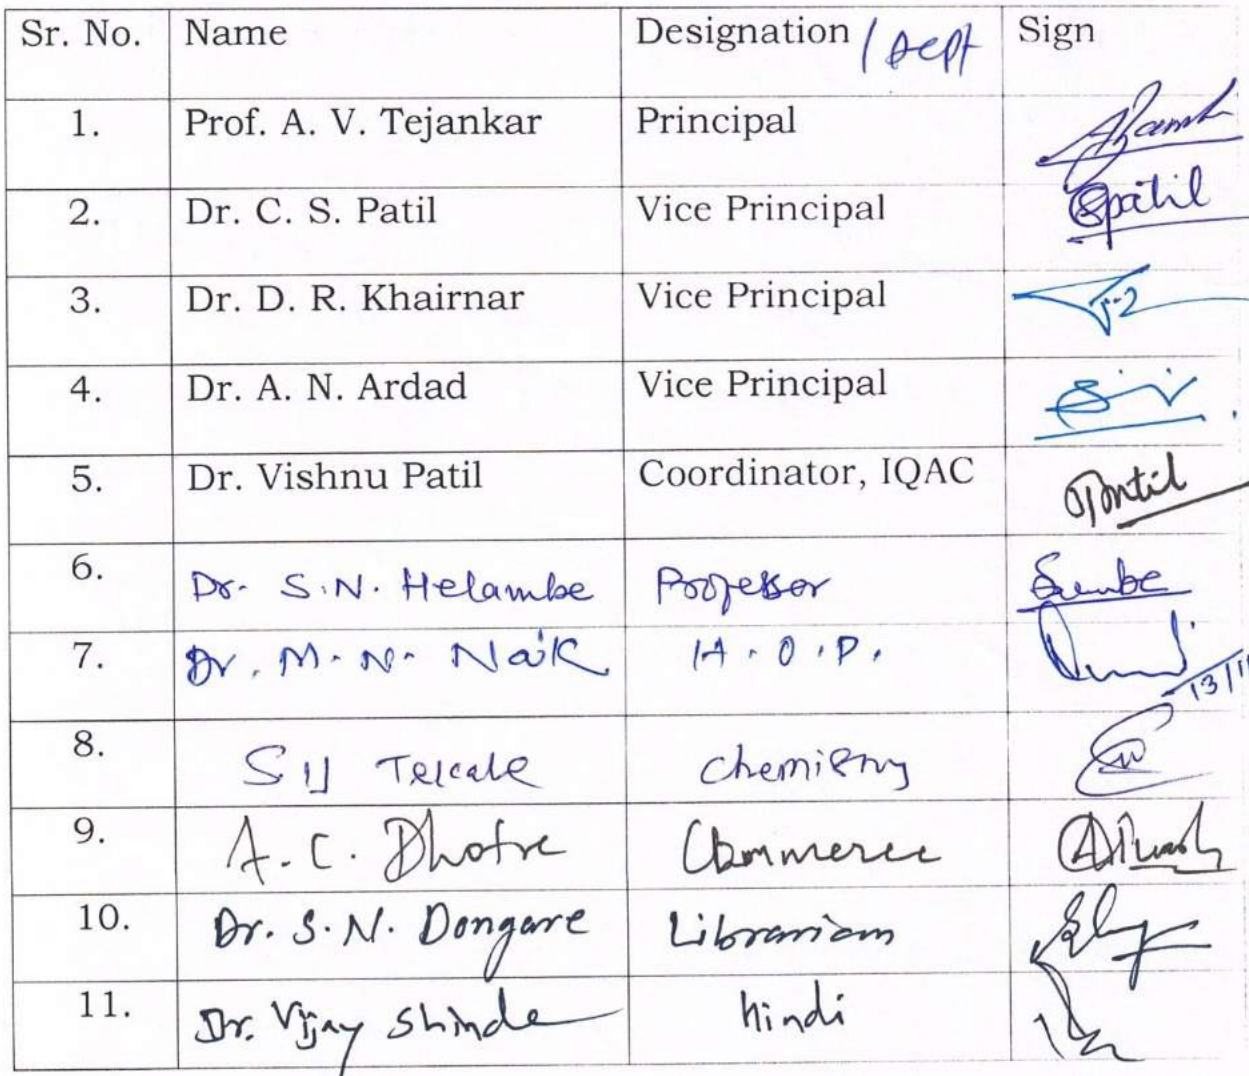 Sr. No. Name Designation / Dept Sign
1. Prof. A. V. Tejankar Principal
2. Dr. C. S. Patil Vice Principal Spatil
3. Dr. D. R. Khairnar Vice Principal
4. Dr. A. N. Ardad Vice Principal
5. Dr. Vishnu Patil Coordinator, IQAC
6. Dr. S.N. Helambe Professor
7. Dr. M. N. Naik H.O.D.
13/11
8. Chemistry
9. A. C. Dhotre Commerce
10. Dr. S. N. Dongare Librarian
11. Dr. Vijay Shinde hindi